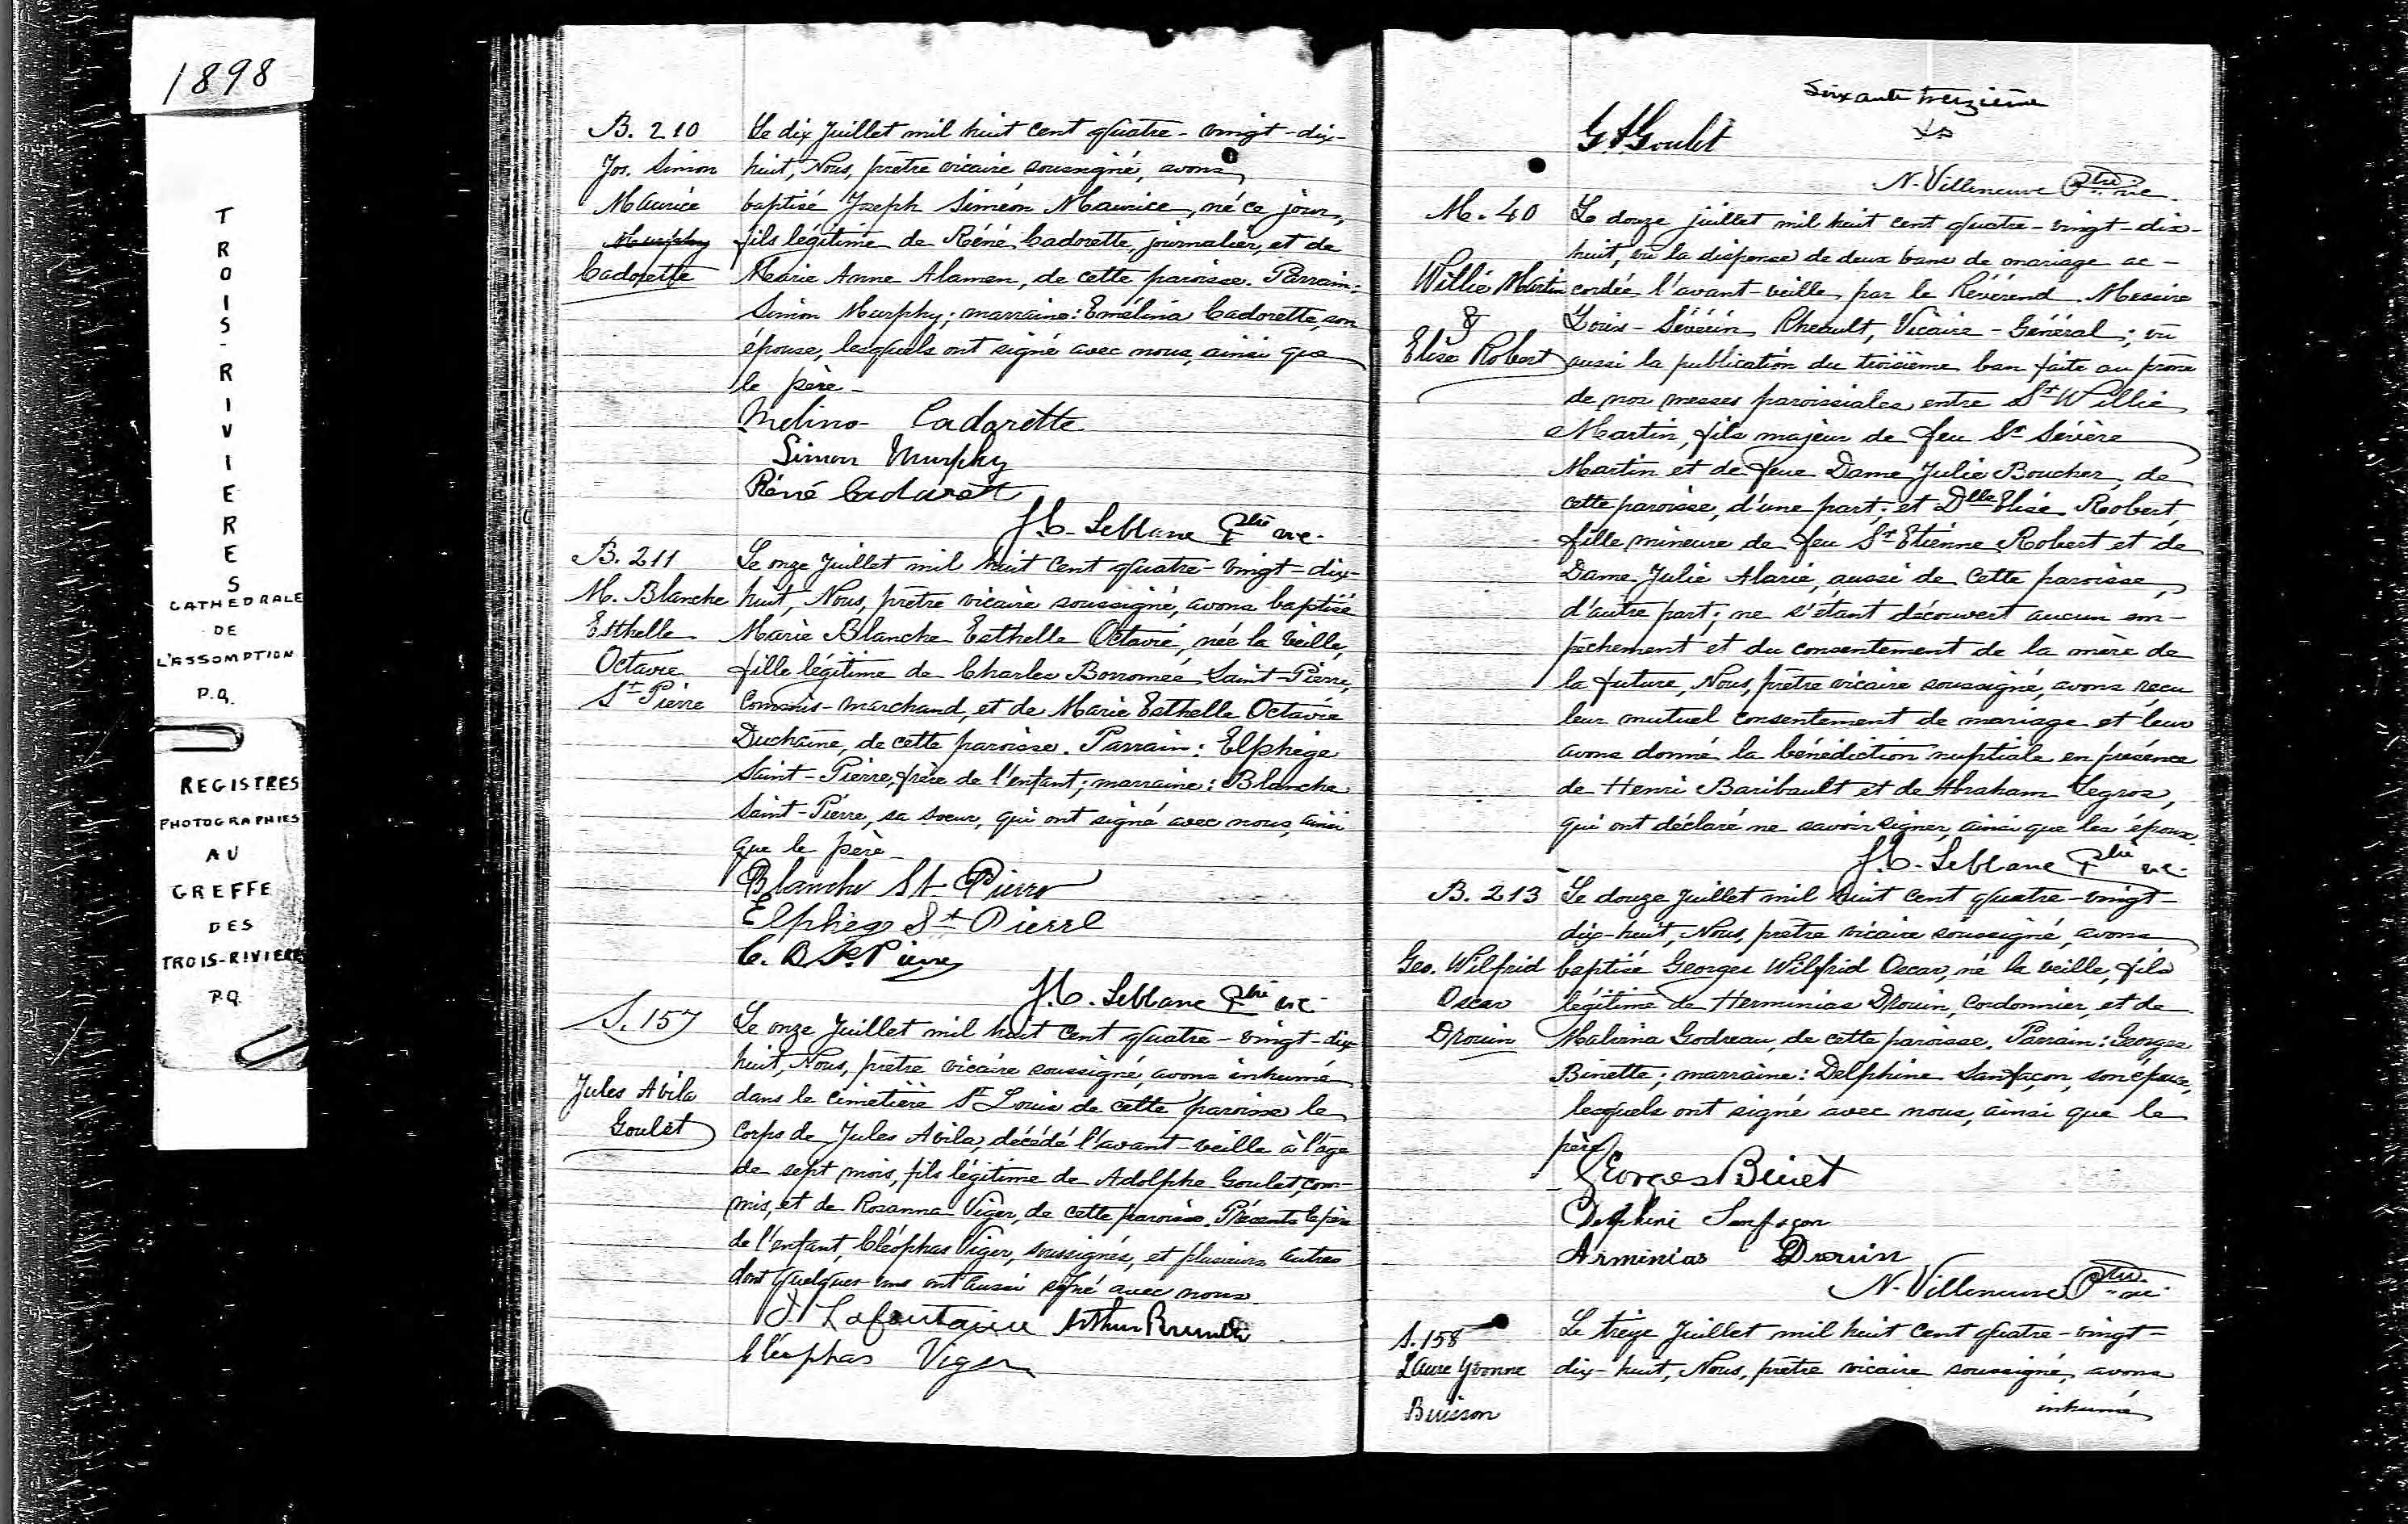 1898
TROIS-RIVIERES
CATHEDRALE
DE
L'ASSOMPTION
P.Q.
REGISTRES
PHOTOGRAPHIES
AU
GREFFE
DES
TROIS-RIVIERES
P.Q.
B. 210
Jos. Simon
Maurice
Murphy
Cadorette
Le dix Juillet mil huit cent quatre-vingt-dix-
huit, Nous, prêtre vicaire soussigné, avons
baptisé Joseph Siméon Maurice, né ce jour,
fils légitime de Réné Cadorette, journalier, et de
Marie Anne Alamen, de cette paroisse. Parrain:
Simon Murphy; marraine: Emélina Cadorette, son
épouse, lesquels ont signé avec nous, ainsi que
le père-
Melina Cadorette
Simon Murphy
Réné Cadorett
J.C. Leblanc Ptre vic.
B. 211
M. Blanche
Esthelle
Octavie
St Pierre
Le onze Juillet mil huit cent quatre-vingt-dix-
huit, Nous, prêtre vicaire soussigné, avons baptisé
Marie Blanche Esthelle Octavie, née la veille,
fille légitime de Charles Borromée Saint-Pierre,
Commis-marchand, et de Marie Esthelle Octavie
Duchaine, de cette paroisse. Parrain: Elphège
Saint-Pierre, frère de l'enfant; marraine: Blanche
Saint-Pierre, sa soeur, qui ont signé avec nous, ainsi
que le père-
Blanche St Pierre
Elphège St Pierre
C. B. St Pierre
J.C. Leblanc Ptre vic
S. 157
Jules Avila
Goulet
Le onze Juillet mil huit cent quatre-vingt-dix
huit, Nous, prêtre vicaire soussigné, avons inhumé
dans le cimetière St Louis de cette paroisse le
corps de Jules Avila, décédé l'avant-veille à l'âge
de sept mois, fils légitime de Adolphe Goulet, com-
mis, et de Rosanna Viger, de cette paroisse. Présents le père
de l'enfant, Cléophas Viger, soussignés, et plusieurs autres
dont quelques-uns ont aussi signé avec nous.
J. Lafontaine Arthur
Cléophas Viger
Soixante treizième
Goulet
N. Villeneuve Ptre vic.
M. 40
Willie Martin
&
Elise Robert
Le douze juillet mil huit cent quatre-vingt-dix-
huit, vu la dispense de deux bans de mariage ac-
cordée l'avant-veille par le Révérend Messire
Louis-Sévérin Rheault, Vicaire-Général; vu
aussi la publication du troisième ban faite au prône
de nos messes paroissiales entre Sr Willie
Martin, fils majeur de feu Sr Sévère
Martin et de feue Dame Julie Boucher, de
cette paroisse, d'une part; et Dlle Elise Robert,
fille mineure de feu Sr Etienne Robert et de
Dame Julie Alarie, aussi de cette paroisse,
d'autre part; ne s'étant découvert aucun em-
pêchement et du consentement de la mère de
la future, Nous, prêtre vicaire soussigné, avons reçu
leur mutuel consentement de mariage et leur
avons donné la bénédiction nuptiale en présence
de Henri Baribault et de Abraham Legros,
qui ont déclaré ne savoir signer, ainsi que les époux.
J.C. Leblanc Ptre vic.
B. 213
Geo. Wilfrid
Oscar
Drouin
Le douze Juillet mil huit cent quatre-vingt-
dix-huit, Nous, prêtre vicaire soussigné, avons
baptisé Georges Wilfrid Oscar, né la veille, fils
légitime de Herminias Drouin, Cordonnier, et de
Malvina Godreau, de cette paroisse. Parrain: Georges
Binette; marraine: Delphine Sanfaçon, son épouse,
lesquels ont signé avec nous, ainsi que le
père
Georges Binet
Delphine Sanfaçon
Arminias Drouin
N. Villeneuve Ptre vic
S. 158
Laure Yvonne
Buisson
Le treize Juillet mil huit cent quatre-vingt-
dix-huit, Nous, prêtre vicaire soussigné, avons
inhumé